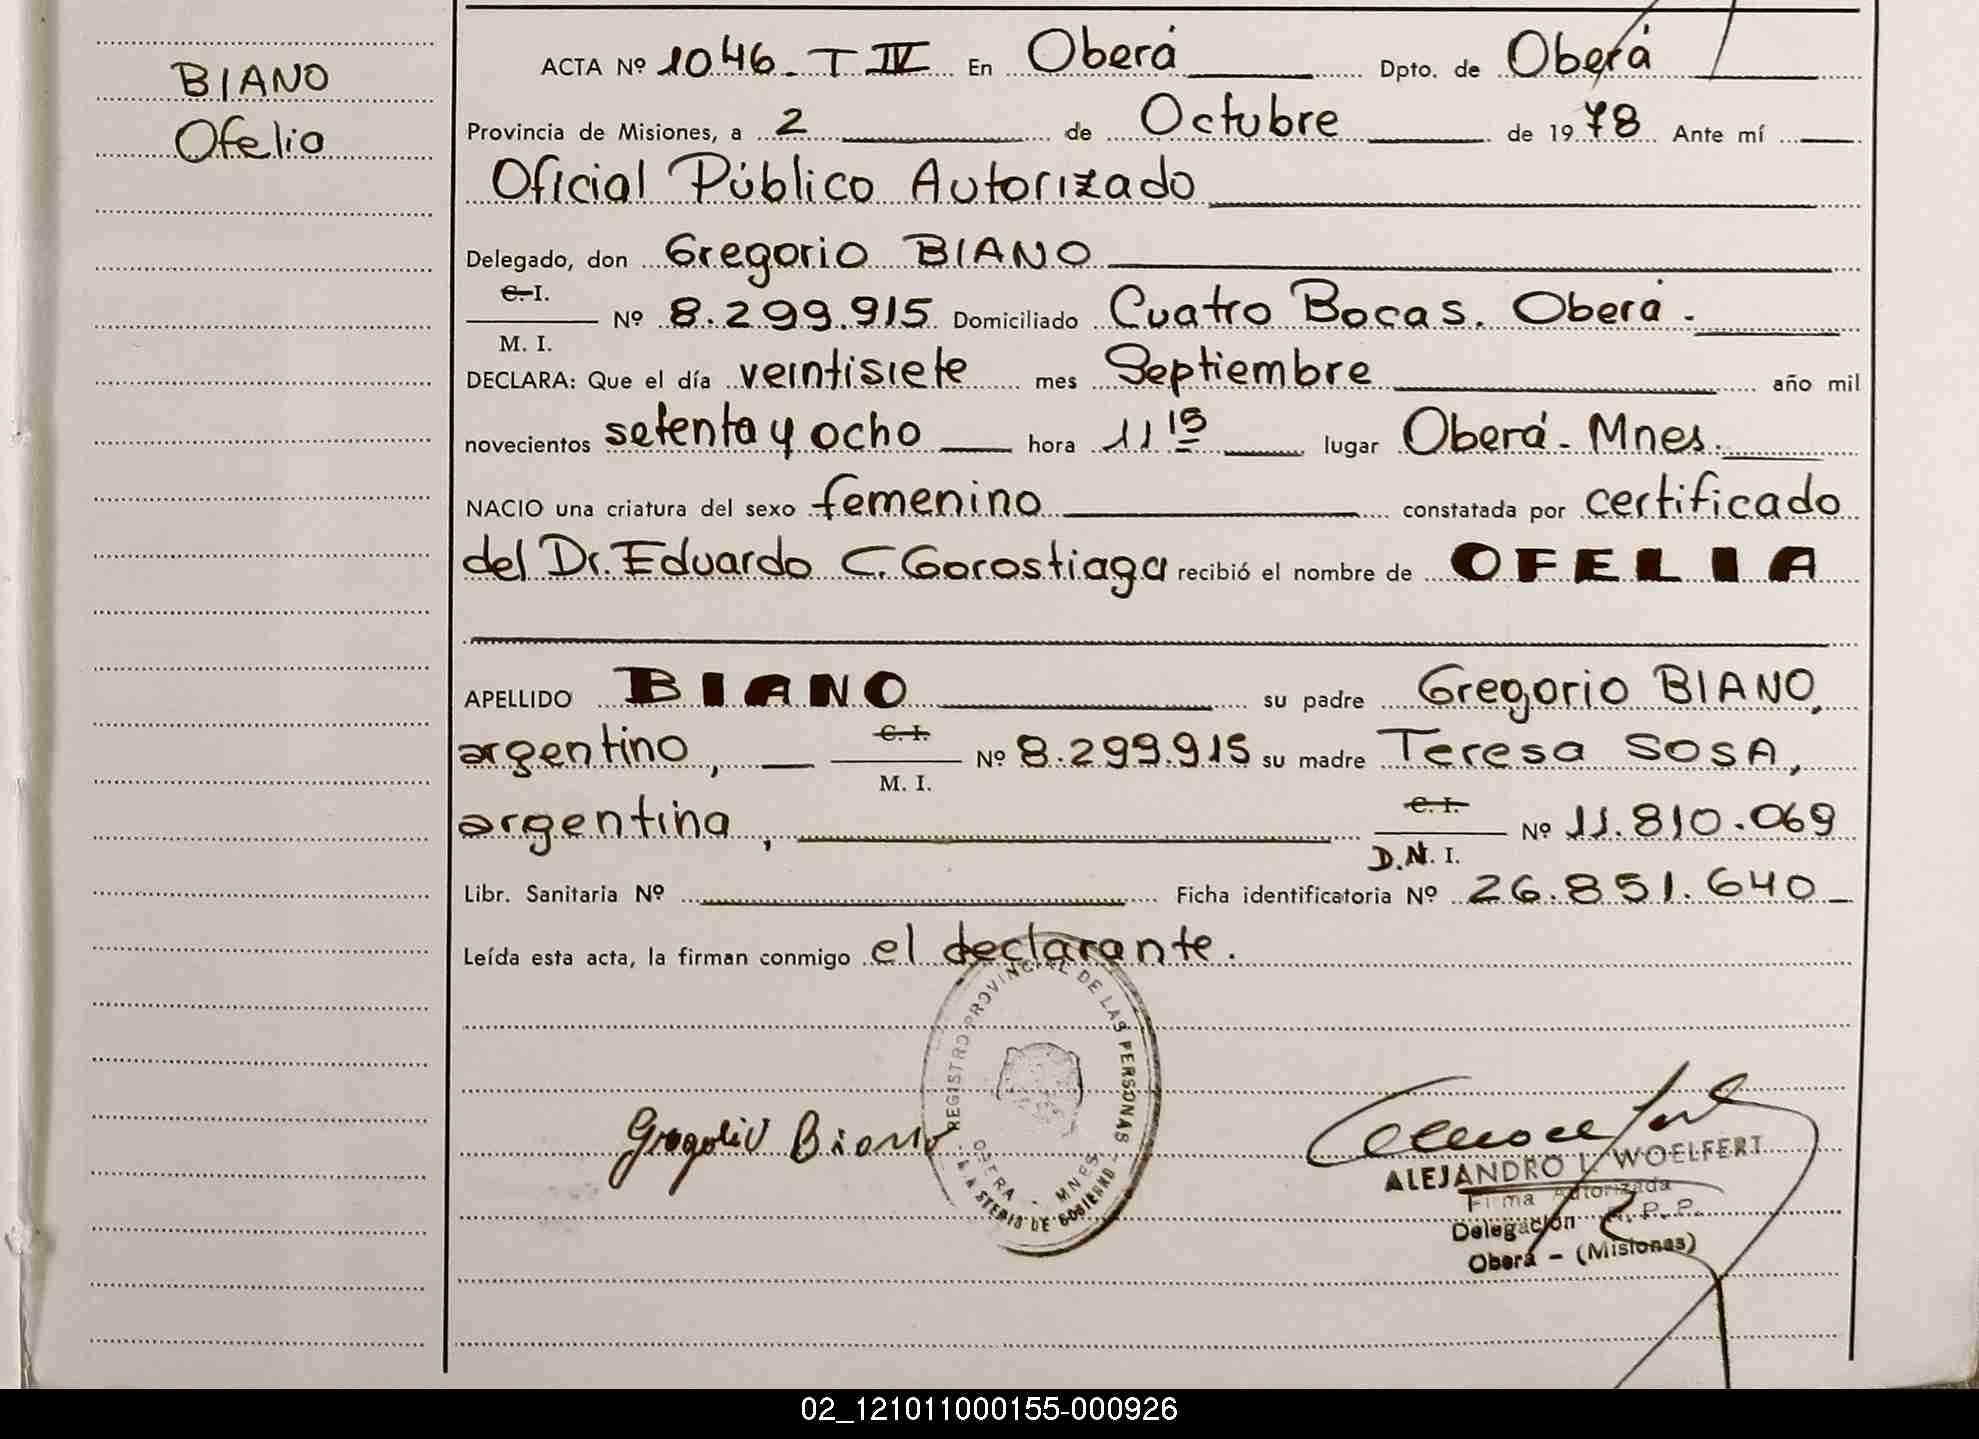 BIANO
Ofelia
ACTA Nº 1046. T IV En Oberá Dpto. de Oberá
Provincia de Misiones, a 2 de Octubre de 1978 Ante mí
Oficial Público Autorizado
Delegado, don Gregorio BIANO
C. I.
Nº 8.299.915 Domiciliado Cuatro Bocas. Oberá.
M. I.
DECLARA: Que el día veintisiete mes Septiembre año mil
novecientos setenta y ocho hora 11 15 lugar Oberá - Mnes.
NACIO una criatura del sexo femenino constatada por certificado
del Dr. Eduardo C. Gorostiaga recibió el nombre de OFELIA
APELLIDO BIANO su padre Gregorio BIANO,
argentino, C. I. Nº 8.299.915 su madre Teresa SOSA,
M. I.
argentina, C. I. Nº 11.810.069
D.N. I.
Libr. Sanitaria Nº Ficha identificatoria Nº 26.851.640
Leída esta acta, la firman conmigo el declarante.
REGISTRO PROVINCIAL DE LAS PERSONAS
OBERA - MNES
DE GOBIERNO
Biano
ALEJANDRO L. WOELFERT
Firma Autorizada
Delegación R. P. P.
Oberá - (Misiones)
02_121011000155-000926